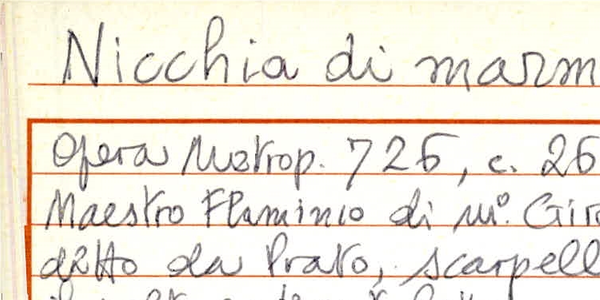 Nicchia di marm
Opera Metrop. 726, c. 26
Maestro Flaminio di mº. Giro
detto da Prato, scarpell